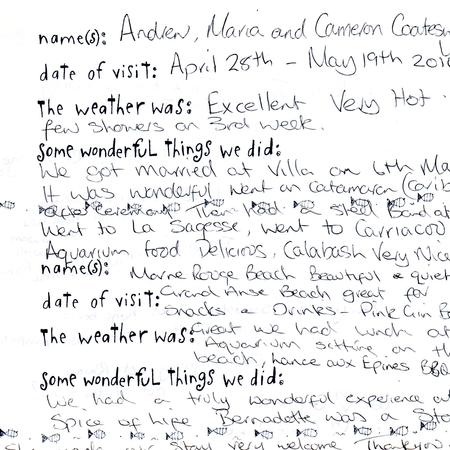 name(s): Andrew, Maria and Cameron Coates
date of visit: April 28th - May 19th 201
The weather was: Excellent Very Hot.
few showers on 3rd week.
Some wonderful things we did:
We got married at Villa on 6th Ma
It was wonderful went on catamaran (Carib
after ceremony. Then Had a Steel Band at
Went to La Sagesse, went to Carriacou
Aquarium food Delicious, Calabash Very Nice
name(s): Morne Rouge Beach Beautiful & quiet
date of visit: Grand Anse Beach great for
Snacks & Drinks - Pink Gin B
The weather was: Great we had lunch at
Aquarium sitting on th
beach, Lance aux Epines BBQ
Some wonderful things we did:
We had a truly wonderful experience at
Spice of Life Bernadette was a Sta
our stay very welcome Thankyou